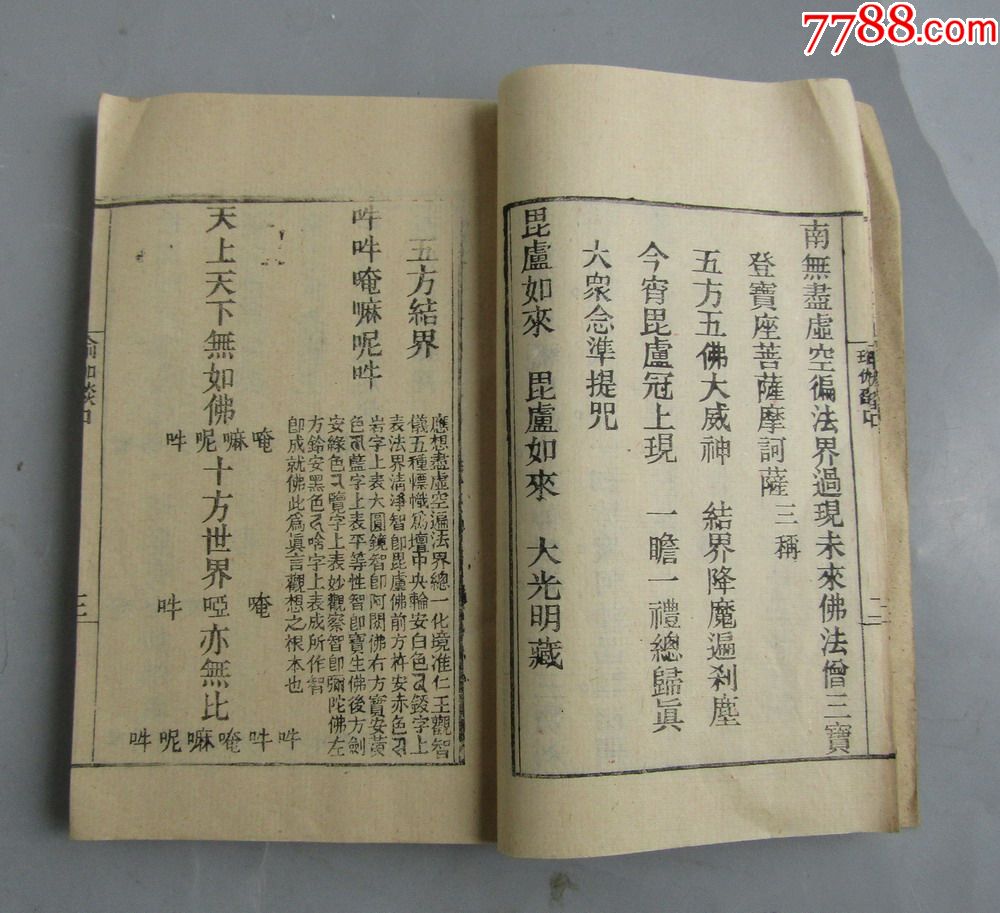 7788.com
南無盡虛空徧法界過現未來佛法僧三寶
登寶座菩薩摩訶薩 三稱
五方五佛大威神 結界降魔遍刹塵
今宵毘盧冠上現 一瞻一禮總歸眞
大衆念準提咒
毘盧如來 毘盧如來 大光明藏
二
五方結界
吽吽唵嘛呢吽
應想盡虛空遍法界總一化境准仁王觀智
儀五種幖幟爲壇中央輪安白色鑁字上
表法界淸淨智卽毘盧佛前方杵安赤色
字上表大圓鏡智卽阿閦佛右方寶安黃
色藍字上表平等性智卽寶生佛後方劍
安綠色覽字上表妙觀察智卽彌陀佛左
方鈴安黑色啥字上表成所作智
卽成就佛此爲眞言觀想之根本也
天上天下無如佛
唵嘛呢吽
十方世界啞亦無比
唵 吽
吽吽唵嘛呢吽
三